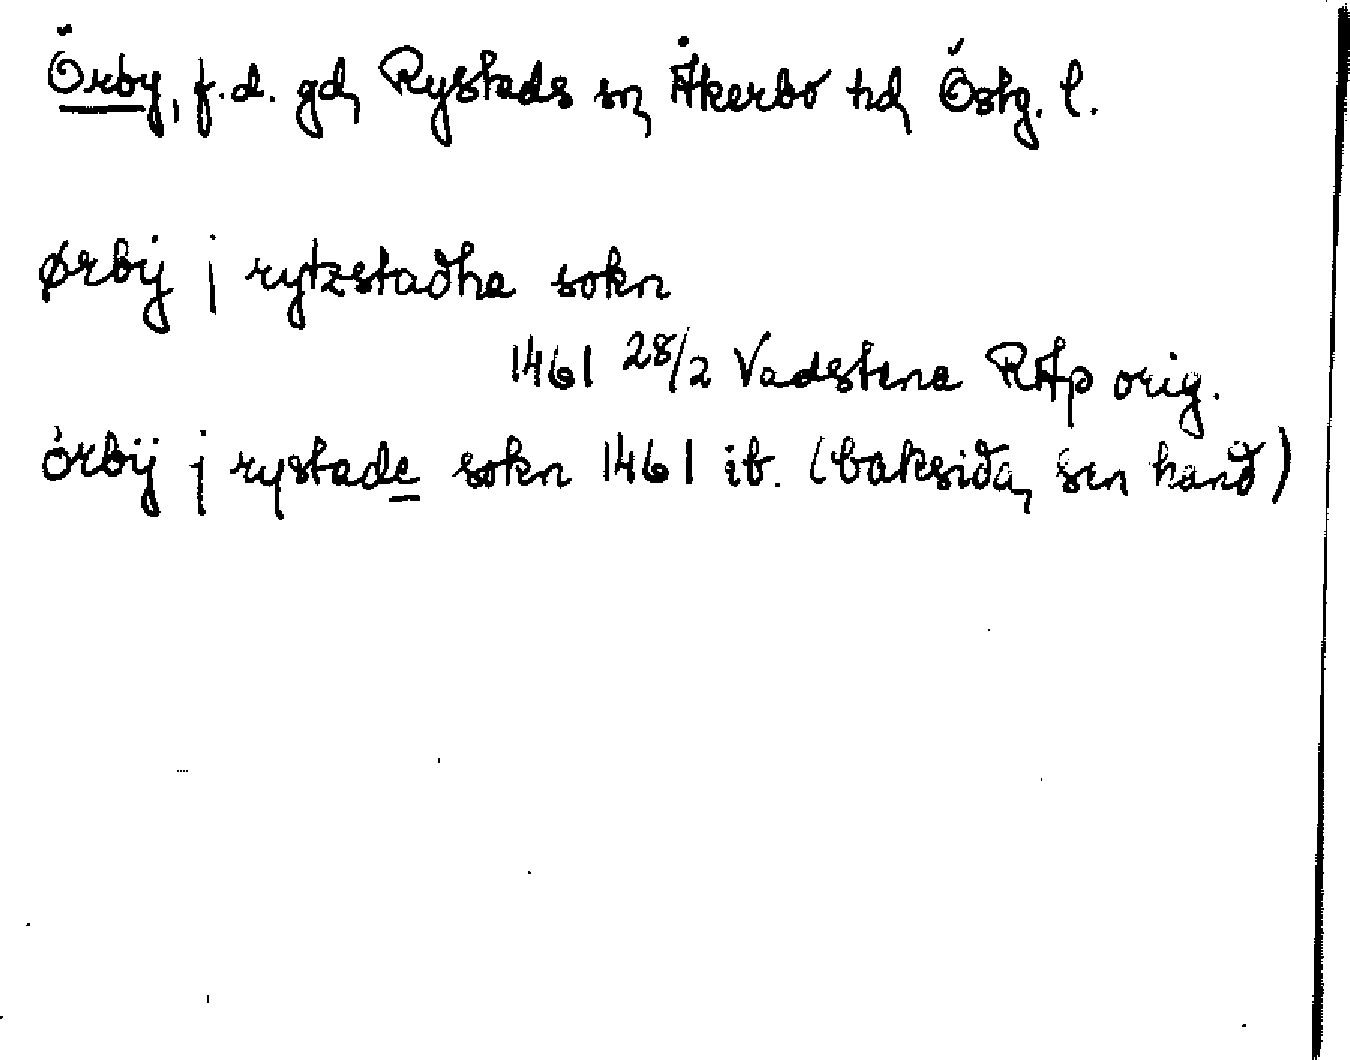 Örby, f.d. gd, Rystads sn, Åkerbo hd, Östg. l.
ørbÿ j rytzstadha sokn
1461 28/2 Vadstena RAp orig.
örbÿ j rystade sokn 1461 ib. (baksida, sen hand)